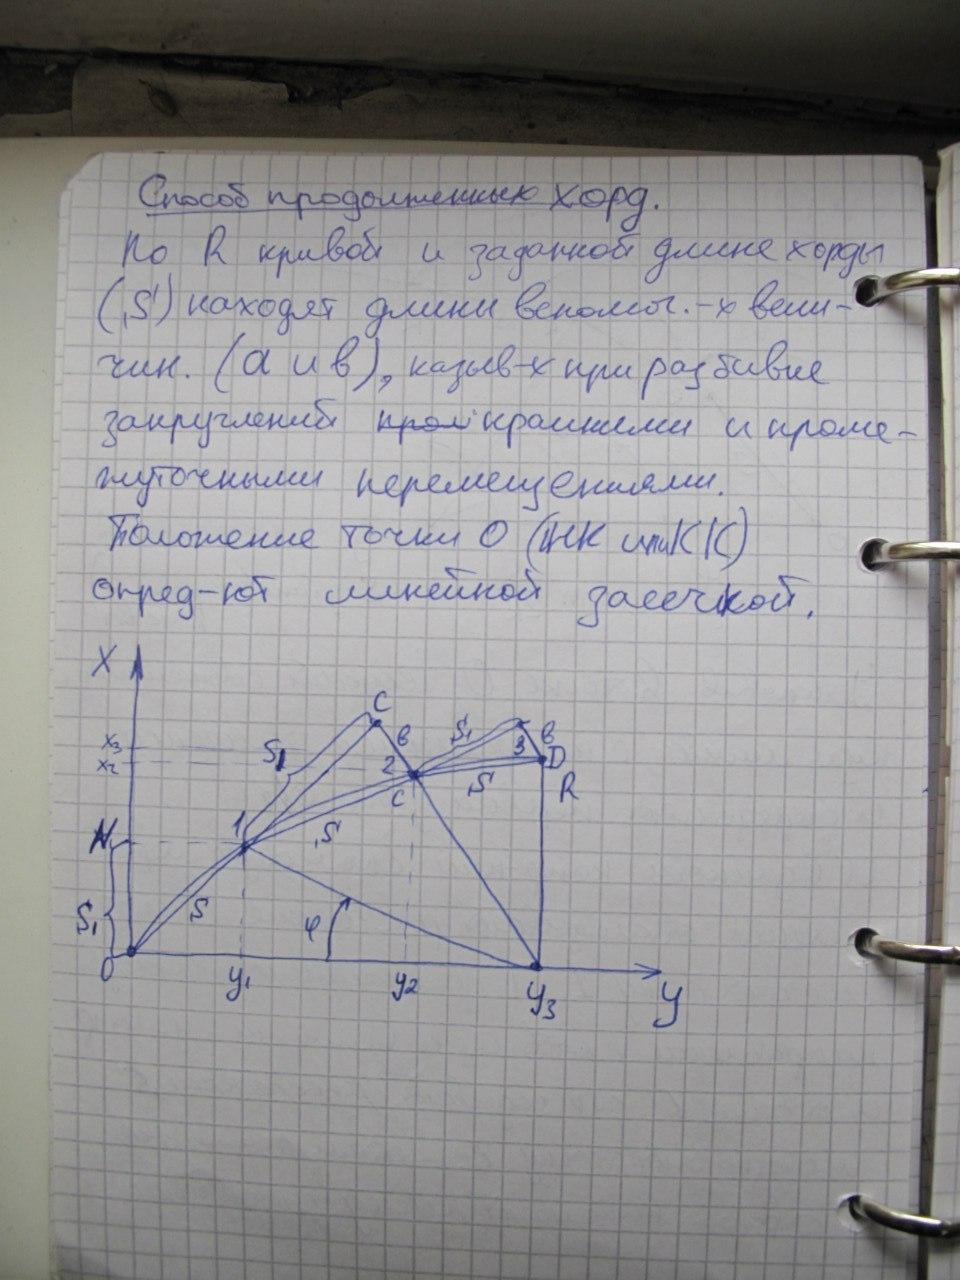 Способ продолженных хорд.
По R кривой и заданной длине хорды
(S) находят длины вспомог.-х вели-
чин. (а и в), назыв-х при разбивке
закруглений крайними и проме-
жуточными перемещениями.
Положение точки О (НК или КК)
опред-ют линейной засечкой.
X
C
S1 в S1 в
x3
x2
2 3 D
C S R
1
N S
S1
S φ
0
y1 y2 y3 y